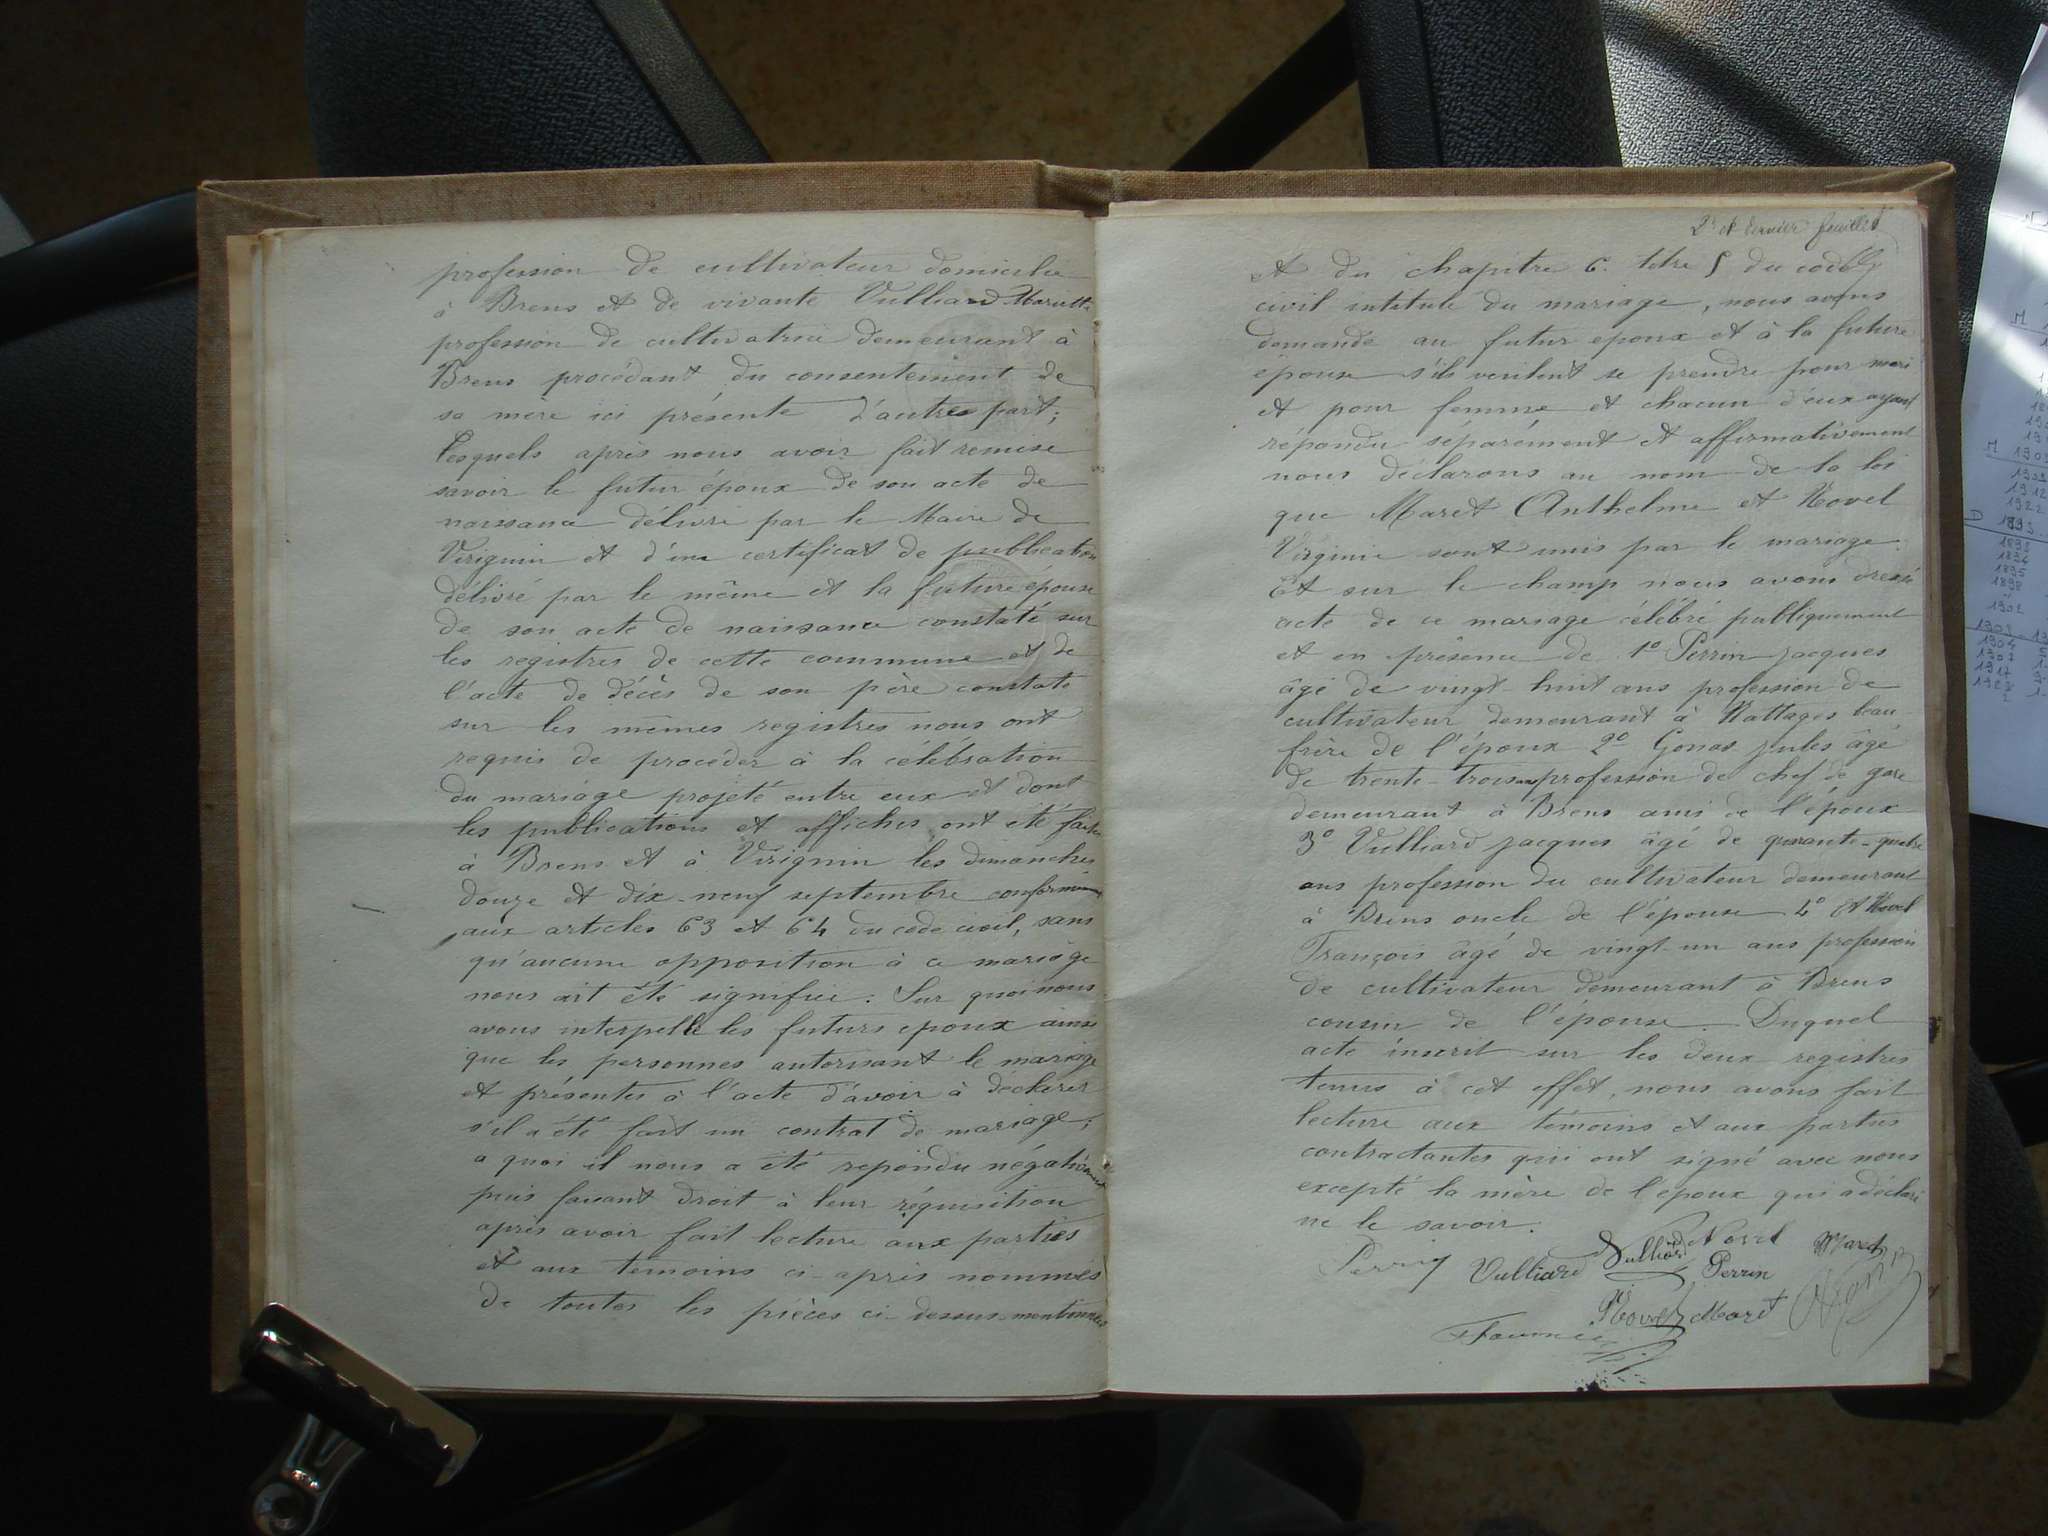 profession de cultivateur domicilié
à Brens et de vivante Vulliard Mariette
profession de cultivatrice demeurant à
Brens procédant du consentement de
sa mère ici présente d'autre part;
Lesquels après nous avoir fait remise
savoir le futur époux de son acte de
naissance délivré par le Maire de
Virignin et d'un certificat de publication
délivré par le même et la future épouse
de son acte de naissance constaté sur
les registres de cette commune et de
l'acte de décès de son père constaté
sur les mêmes registres nous ont
requis de procéder à la célébration
du mariage projeté entre eux et dont
les publications et affiches ont été faites
à Brens et à Virignin les dimanches
douze et dix-neuf septembre conformément
aux articles 63 et 64 du code civil, sans
qu'aucune opposition à ce mariage
nous ait été signifiée. Sur quoi nous
avons interpellé les futurs epoux ainsi
que les personnes autorisant le mariage
et présentes à l'acte d'avoir à déclarer
s'il a été fait un contrat de mariage;
a quoi il nous a été repondu négativement
puis faisant droit à leur réquisition
après avoir fait lecture aux parties
et aux temoins ci-après nommés
de toutes les pièces ci-dessus mentionnées
2e et dernier feuillet
et du chapitre 6. titre 5 du code
civil intitulé du mariage, nous avons
demandé au futur epoux et à la future
épouse s'ils veulent se prendre pour mari
et pour femme et chacun d'eux ayant
répondu séparément et affirmativement
nous déclarons au nom de la loi
que Maret Anthelme et Novel
Virginie sont unis par le mariage.
Et sur le champ nous avons dressé
acte de ce mariage célébré publiquement
et en présence de 1° Perrin Jacques
âgé de vingt-huit ans profession de
cultivateur demeurant à Nattages beau
frère de l'époux 2° Gonas Jules âgé
de trente-trois ans profession de chef de gare
demeurant à Brens ami de l'époux
3° Vulliard Jacques âgé de quarante-quatre
ans profession du cultivateur demeurant
à Brens oncle de l'épouse 4° et Novel
François âgé de vingt-un ans profession
de cultivateur demeurant à Brens
cousin de l'épouse. Duquel
acte inscrit sur les deux registres
tenus à cet effet, nous avons fait
lecture aux témoins et aux parties
contractantes qui ont signé avec nous
excepté la mère de l'epoux qui a déclaré
ne le savoir.
Perrin Vulliard Vulliard Novel Maret
Perrin
Novel Maret
1909
1912
1922
1894
1895
1898
1902
1904
1907
1917